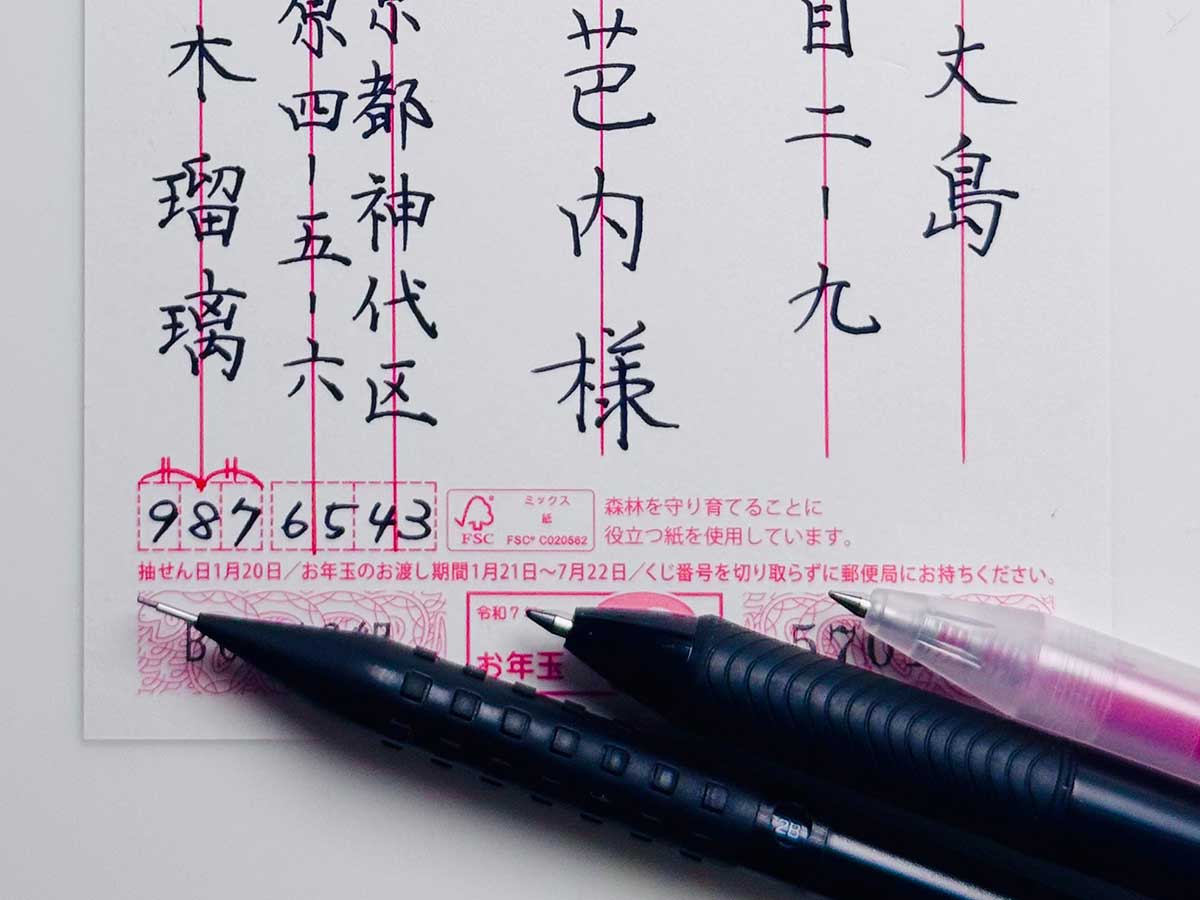 丈島
目二ー九
芭内様
京都神代区
原四ー五ー六
木瑠璃
987 6543
FSC
ミックス
紙
FSC® C020562
森林を守り育てることに
役立つ紙を使用しています。
抽せん日1月20日/お年玉のお渡し期間1月21日〜7月22日/くじ番号を切り取らずに郵便局にお持ちください。
令和7
お年玉
B
570
2B